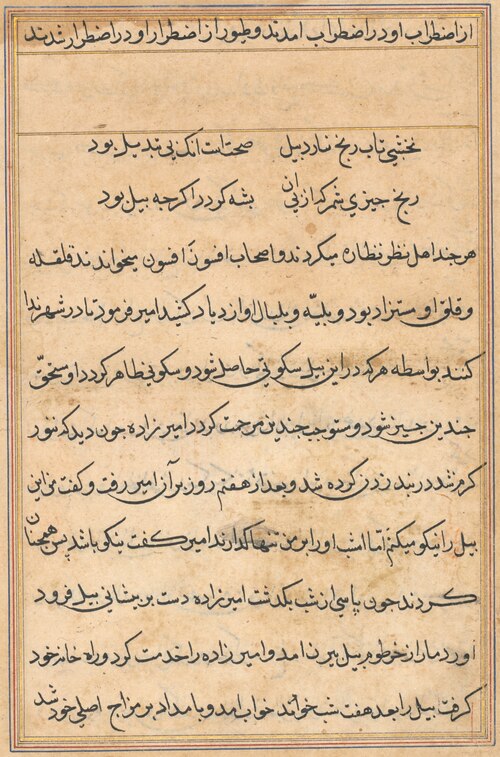 از اضطراب او در اضطراب امدند و طیور از اضطرار او در اضطرار شدند
نخشبی تاب رنج نارد بیل صحتست انک بی تبدیل بود
رنج جیزی شمر که از بی ان بشه کردد اکرجه بیل بود
هر جند اهل نظر نظاره میکردند و اصحاب افسون افسون میخواندند قلقله
و قلق او مستزاد بود و بلیّه و بلبال او ازدیاد کنید امیر فرمود تا در شهر ندا
کنند بواسطه هر که در این بیل سکوتی حاصل شود و سکونی ظاهر کردد او مستحقّ
جندین جیز شود و مستوجب جندین مرحمت کردد امیرزاده جون دید که تنور
کرم شد در بند زدن کرده شد و بعد از هفتم روز بر آن امیر رفت و کفت من این
بیل را نیکو میکنم اما امشب اورا بر من تنها کذارند امیر کفت نیکو باشد بس همجنان
کردند جون پاسی از شب بکذشت امیرزاده دست بر بیشانی بیل فرود
اورد مار از خرطوم بیل بیرون امد و امیرزاده را خدمت کرد و راه خانه خود
کرفت بیل را بعد هفت شب خواند خواب امد و بامداد بر مزاج اصلی خود شد